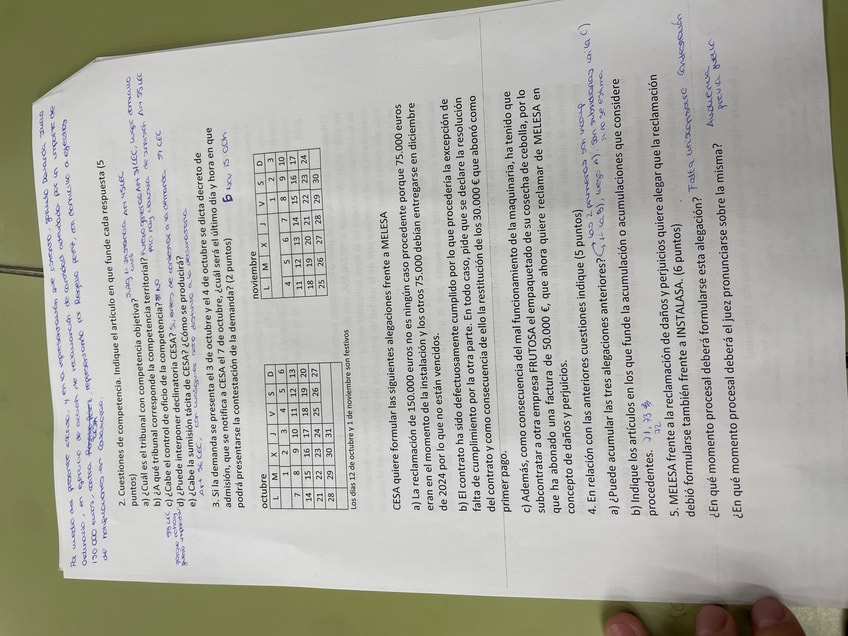 Por medio del presente escrito, y en la representación que ostento, formulo demanda Juicio
Ordinario en ejercicio de acción de reclamación de cantidad
150.000 euros, contra
de notificaciones en
2. Cuestiones de competencia. Indique el artículo en que funde cada respuesta (5
puntos)
a) ¿Cuál es el tribunal con competencia objetiva? Juzg 1ª Instancia Art 45 LEC
b) ¿A qué tribunal corresponde la competencia territorial? Art 51 LEC, luego domicilio
c) ¿Cabe el control de oficio de la competencia? NO
d) ¿Puede interponer declinatoria CESA? Si, antes de contestar a la demanda
e) ¿Cabe la sumisión tácita de CESA? ¿Cómo se produciría?
Art 56 LEC.
3. Si la demanda se presenta el 3 de octubre y el 4 de octubre se dicta decreto de
admisión, que se notifica a CESA el 7 de octubre, ¿cuál será el último día y hora en que
podrá presentarse la contestación de la demanda? (2 puntos) 6 Nov 15:00h
octubre
L M X J V S D
1 2 3 4 5 6
7 8 9 10 11 12 13
14 15 16 17 18 19 20
21 22 23 24 25 26 27
28 29 30 31
noviembre
L M X J V S D
1 2 3
4 5 6 7 8 9 10
11 12 13 14 15 16 17
18 19 20 21 22 23 24
25 26 27 28 29 30
Los días 12 de octubre y 1 de noviembre son festivos
CESA quiere formular las siguientes alegaciones frente a MELESA
a) La reclamación de 150.000 euros no es ningún caso procedente porque 75.000 euros
eran en el momento de la instalación y los otros 75.000 debían entregarse en diciembre
de 2024 por lo que no están vencidos.
b) El contrato ha sido defectuosamente cumplido por lo que procedería la excepción de
falta de cumplimiento por la otra parte. En todo caso, pide que se declare la resolución
del contrato y como consecuencia de ello la restitución de los 30.000 € que abonó como
primer pago.
c) Además, como consecuencia del mal funcionamiento de la maquinaria, ha tenido que
subcontratar a otra empresa FRUTOSA el empaquetado de su cosecha de cebolla, por lo
que ha abonado una factura de 50.000 €, que ahora quiere reclamar de MELESA en
concepto de daños y perjuicios.
4. En relación con las anteriores cuestiones indique (5 puntos)
a) ¿Puede acumular las tres alegaciones anteriores?
b) Indique los artículos en los que funde la acumulación o acumulaciones que considere
procedentes. 71, 73
72
5. MELESA frente a la reclamación de daños y perjuicios quiere alegar que la reclamación
debió formularse también frente a INSTALASA. (6 puntos)
¿En qué momento procesal deberá formularse esta alegación? Falta litisconsorcio
¿En qué momento procesal deberá el juez pronunciarse sobre la misma? Audiencia
previa juicio